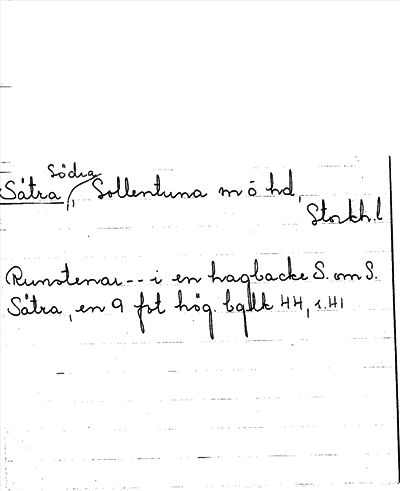 Södra
Sätra, Sollentuna m ö hd,
Stockh.l
Runstenar -- i en hagbacke S. om S.
Sätra, en 9 fot hög. bglk 44, s. 41